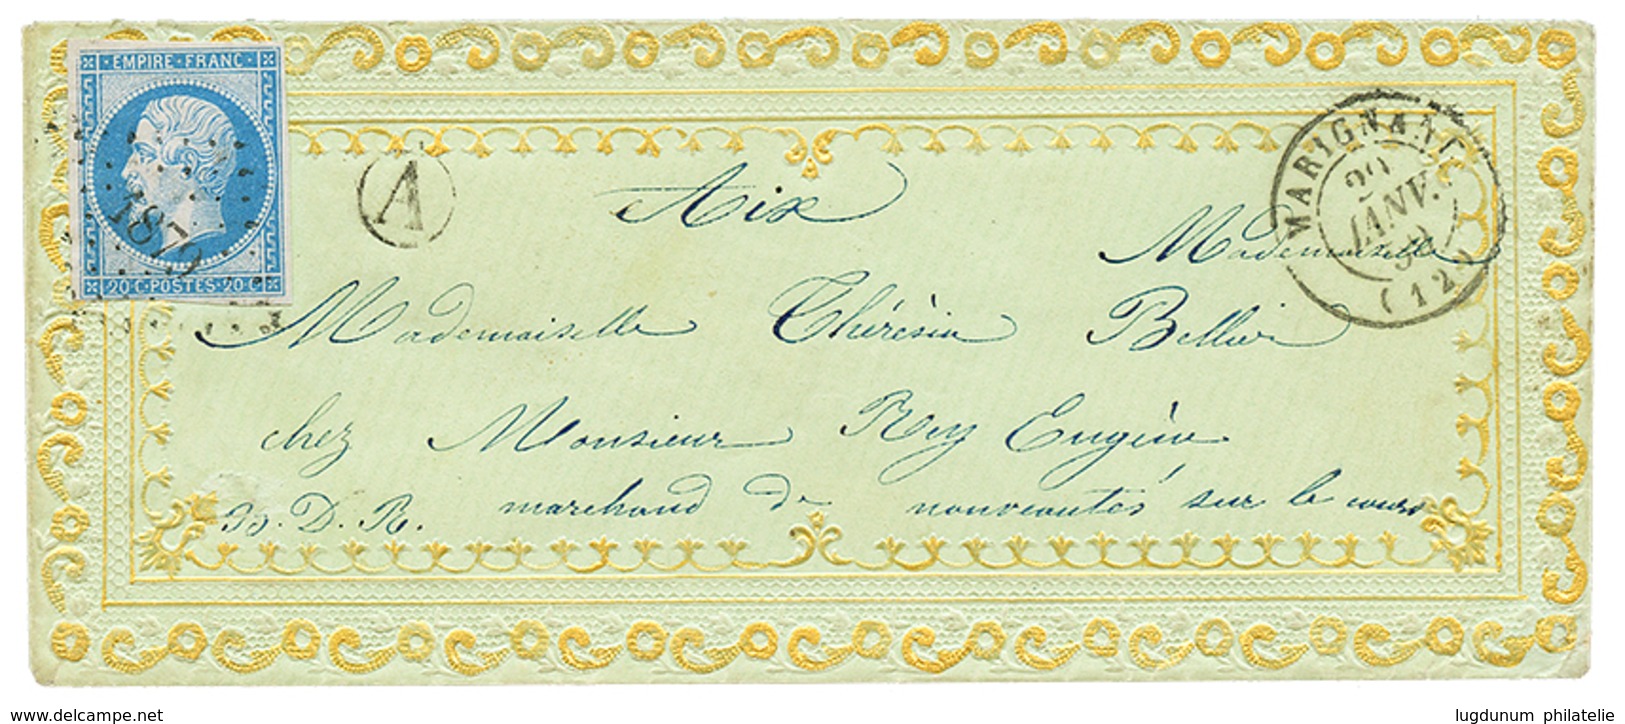 EMPIRE·FRANC·
20·C·POSTES·20·C·
1879
A
MARIGNANE
29
JANV.
59
(12)
Aix
Mademoiselle
Mademoiselle Thérésin Bellier
chez Monsieur Rey Eugène
marchand de nouveautés sur le cours
D. R.
www.delcampe.net
lugdunum philatelie